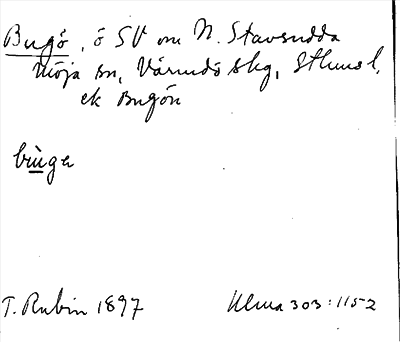 Bugö, ö SV om N. Stavsudda
Möja sn, Värmdö skg, Sthms l,
ek Bugön
bùga
T. Rubin 1897 Ulma 303:1152